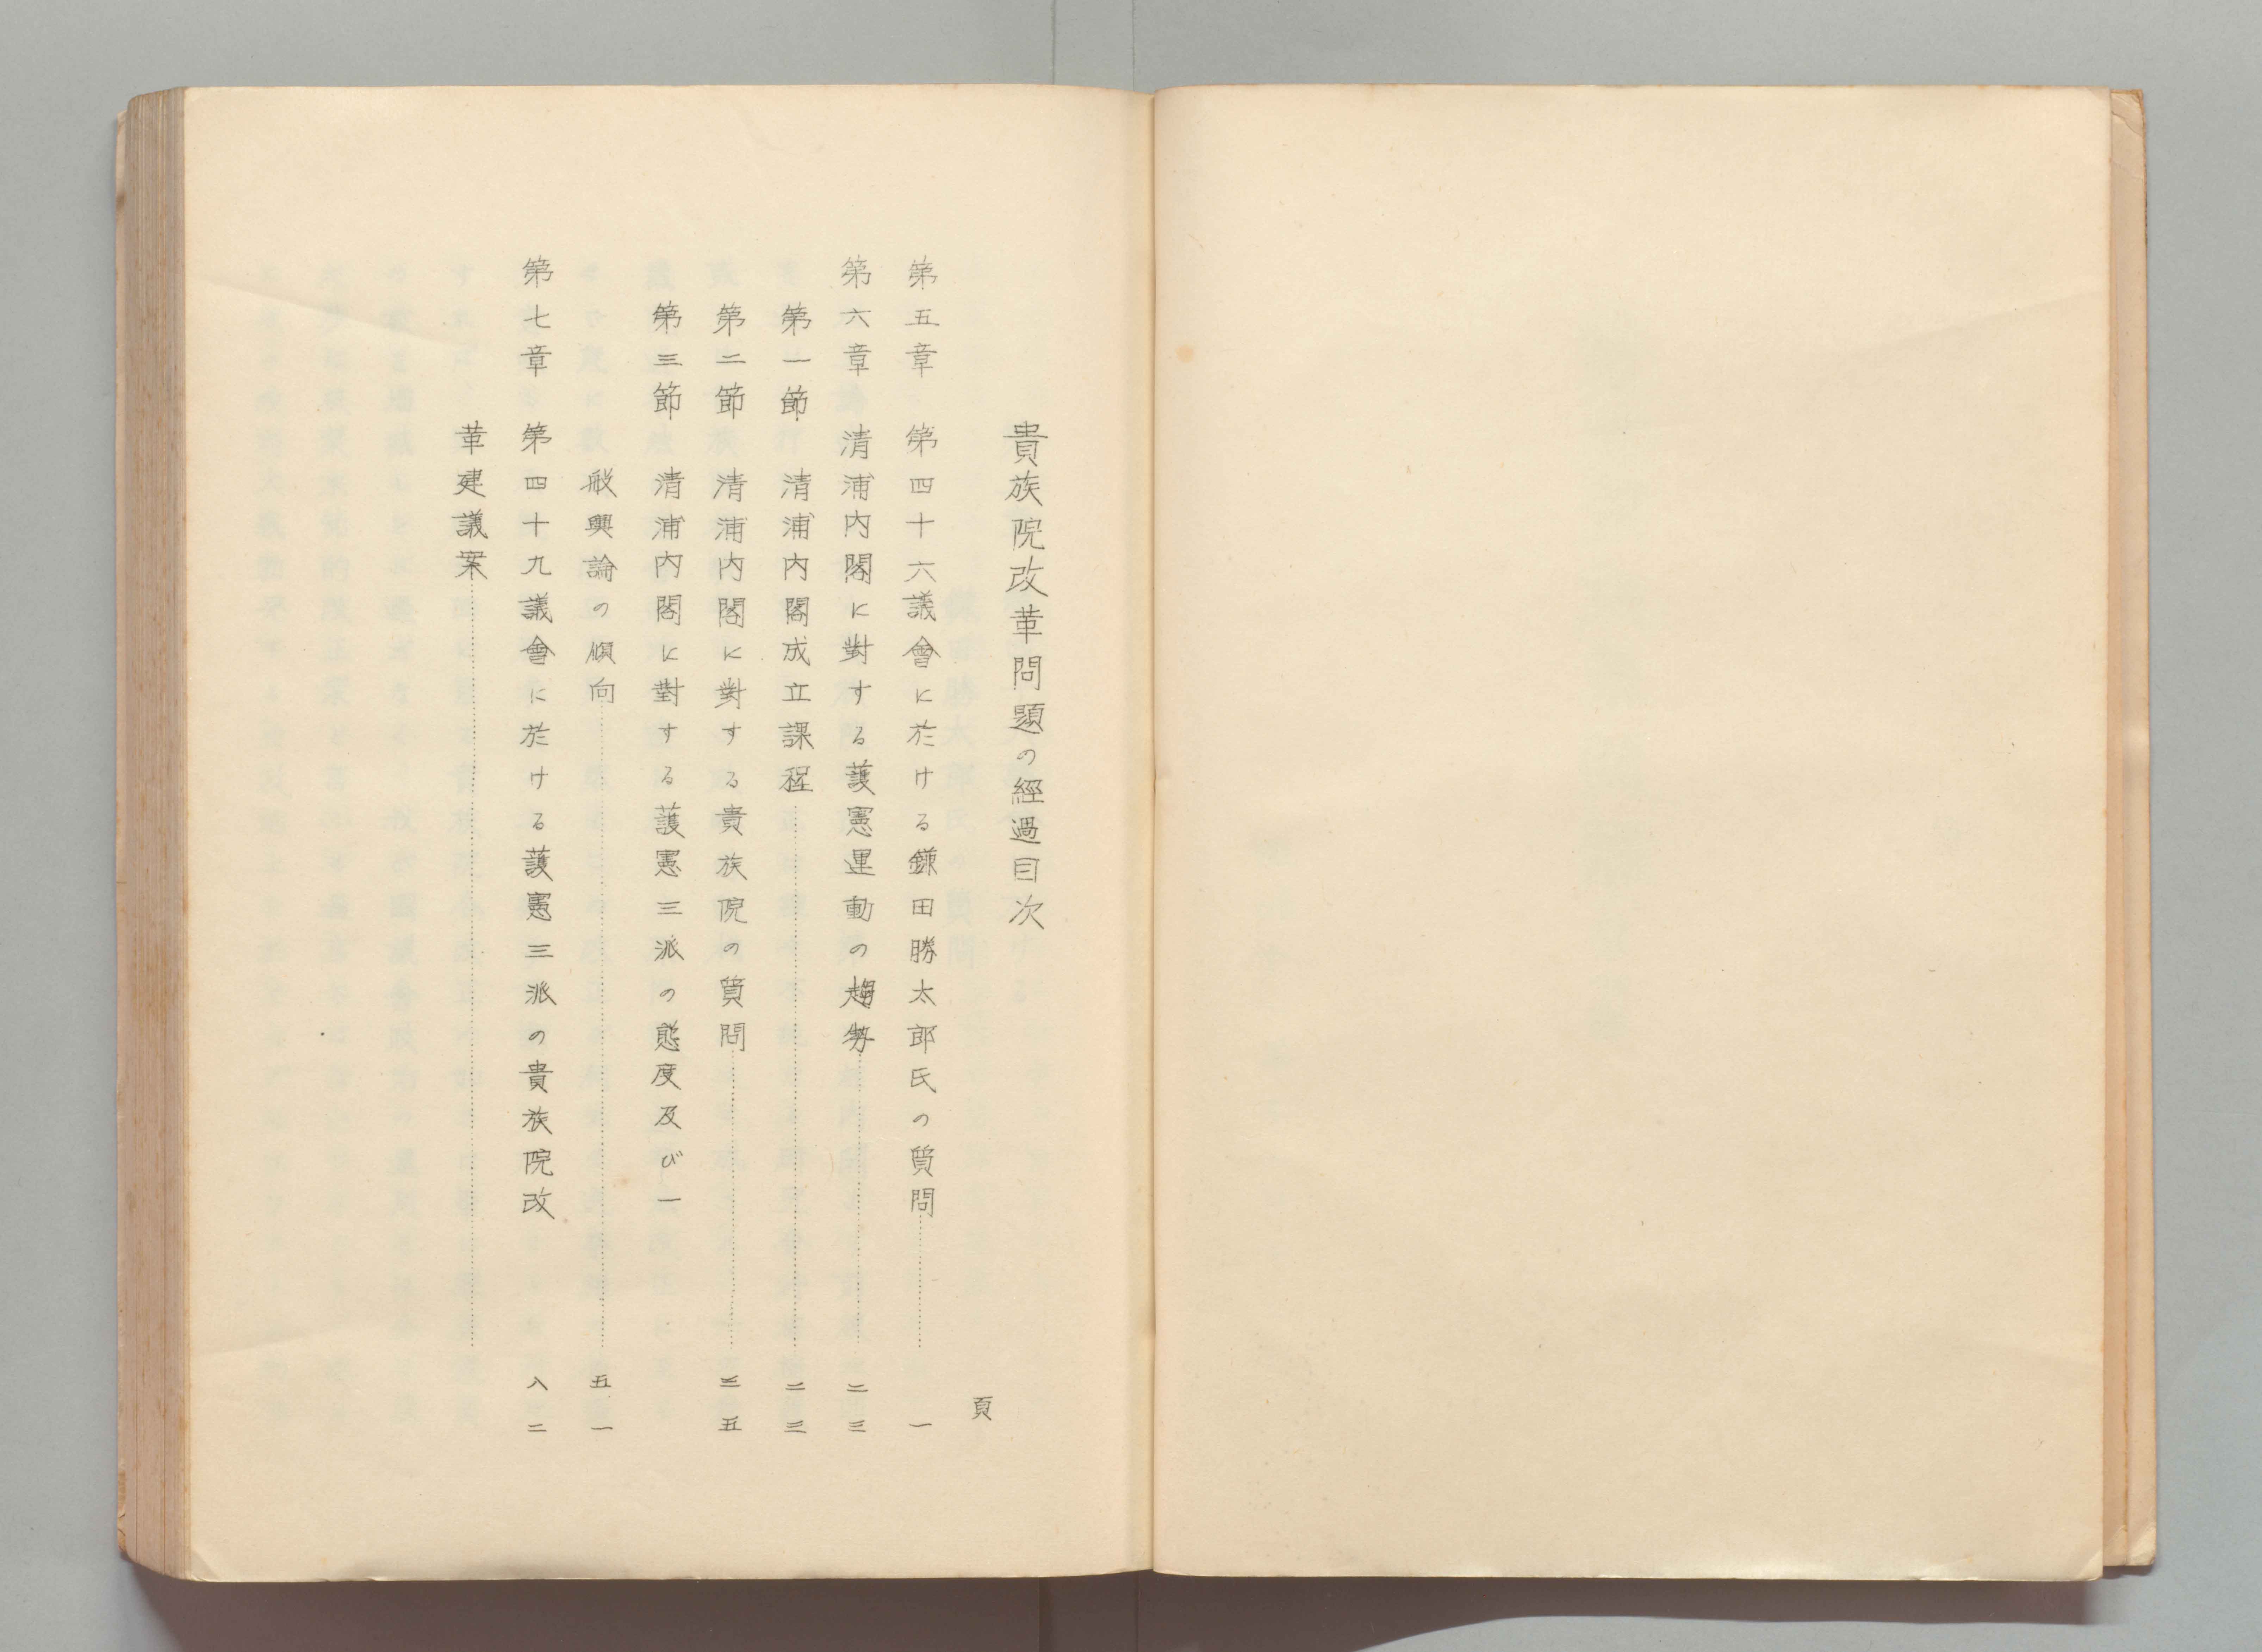 貴族院改革問題の經過目次
頁
第五章 第四十六議會に於ける鎌田勝太郎氏の質問……一
第六章 清浦内閣に對する護憲運動の趨勢……二三
第一節 清浦内閣成立課程……二三
第二節 清浦内閣に對する貴族院の質問……三五
第三節 清浦内閣に對する護憲三派の態度及び一
般輿論の傾向……五一
第七章 第四十九議會に於ける護憲三派の貴族院改
革建議案……八二